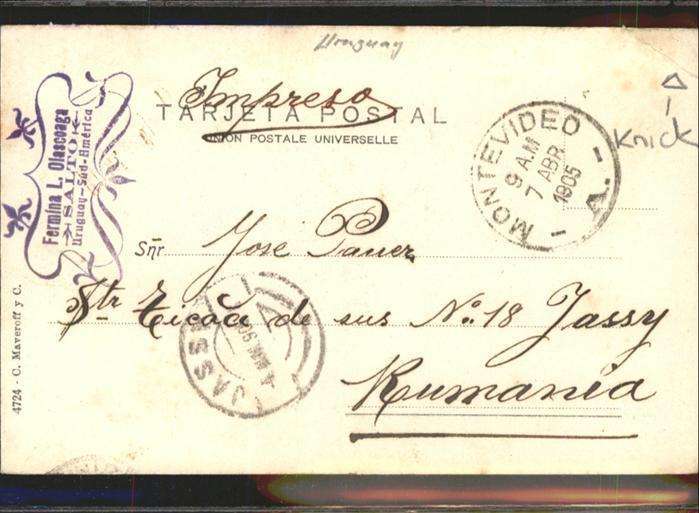 Uruguay
Impreso
TARJETA POSTAL
UNION POSTALE UNIVERSELLE
Knick
MONTEVIDEO
9 AM
7 ABR
1905
A.
Fermina L. Olascoaga
SALTO
Uruguay-Súd-América
Sñr José Pauer
Str de sus No. 18 Jassy
Rumania
JASSY
4724 - C. Maveroff y C.